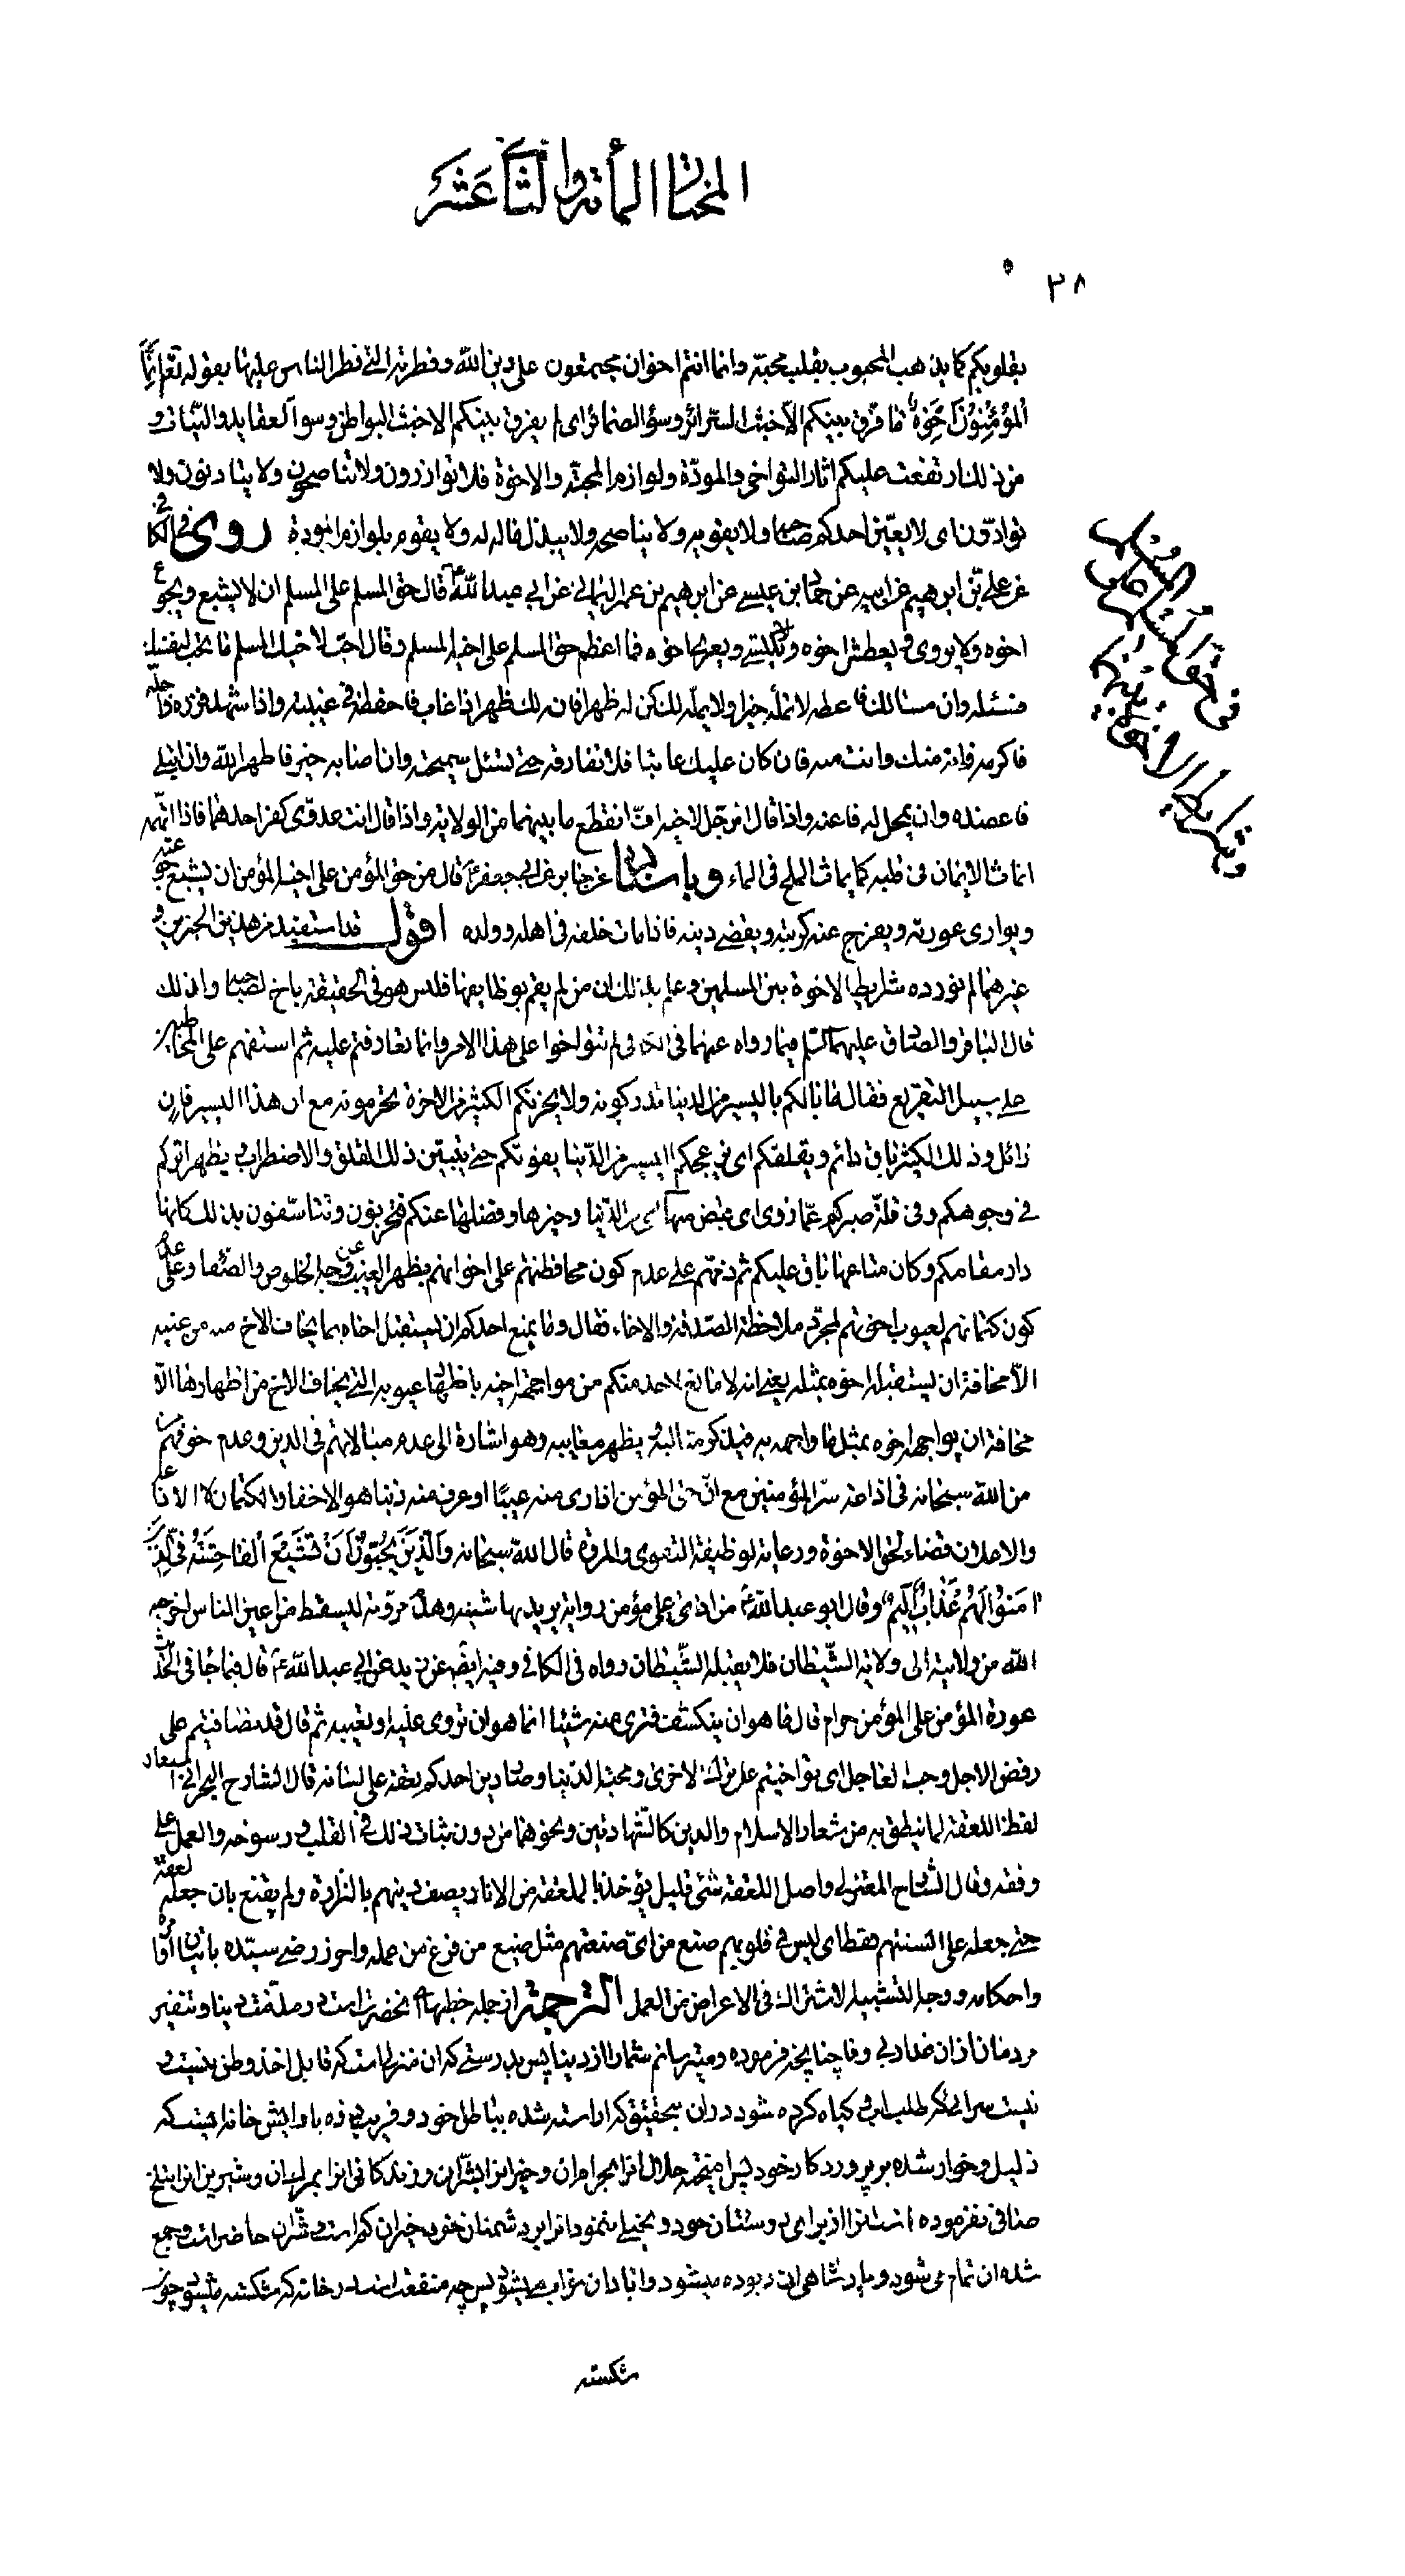 المختار المأة والثانى عشر
٣٨
بقلوبكم كما يذهب المحبوب بقلب محبّه وانما انتم اخوان مجتمعون على دين الله وفطرته التى فطر الناس عليها بقوله تعالى انما
المُؤْمِنُونَ اِخْوَةٌ ما فرّق بينكم الّا خبث السّرائر وسوء الضمائر اى لم يفرق بينكم الا خبث البواطن وسوء العقايد والنيّات و
من ذلك ارتفعت عليكم اثار التواخى والمودّة ولوازم المحبّة والاخوة فلا توازرون ولا تناصحون ولا تباذلون ولا
توادّون اى لا يعين احدكم صاحبه ولا يقويه ولا يناصحه ولا يبذل ماله له ولا يقوم بلوازم المودة روى فى الكافى
عن علىّ بن ابرهيم عن ابيه عن حماد بن عيسى عن ابرهيم بن عمر اليمانى عن ابي عبدالله ع قال حق المسلم على المسلم ان لا يشبع ويجوع
اخوه ولا يروى ويعطش اخوه ولا يكتسى ويعرى اخوه فما اعظم حق المسلم على اخيه المسلم وقال احبّ لاخيك المسلم ما تحب لنفسك
فسئله وان سئالك فاعطه لا تملّه خيرا ولا يملّه لك كن له ظهرا فانه لك ظهر اذا غاب فاحفظه فى غيبته واذا شهد فزره واجله
فاكرمه فانه منك وانت منه فان كان عليك عاتبا فلا تفارقه حتى تسئل سميحته وان اصابه خير فاحمد الله وان ابتلى
فاعضده وان يمحل له فاعنه واذا قال الرجل لاخيه افّ انقطع ما بينهما من الولاية واذا قال انت عدوّى كفر احدهما فاذا اتّهمه
انماث الايمان فى قلبه كما يماث الملح فى الماء وباسناده عن جابر عن ابى جعفر ع قال من حق المؤمن على اخيه المؤمن ان يشبع جوعته
ويوارى عورته ويفرّج عنه كربته ويقضى دينه فاذا مات خلفه فى اهله وولده اقول قد استفيد من هذين الخبرين و
غيرهما مما لم نورده شرايط الاخوة بين المسلمين وعلم بذلك ان من لم يقم بوظايفها فليس هو فى الحقيقة باخ لصاحبه ولذلك
قال الباقر والصّادق عليهما السّلم فيما رواه عنهما فى الكافى لم تتواخوا على هذا الامر وانما تعارفتم عليه ثم استفهم على المخاطبين
على سبيل التقريع فقال ما بالكم باليسير من الدنيا تدركونه ولا يحزنكم الكثير من الاخرة تحرمونه مع ان هذا اليسير فان
زائل وذلك الكثير باق دائم ويقلقكم اى يزعجكم اليسير من الدّنيا يفوتكم حتى يتبيّن ذلك القلق والاضطراب ويظهر اثركم
فى وجوهكم وفى قلّة صبركم عمّا زوى اى قبض منها اى من الدّنيا وخيرها وفضلها عنكم فتحزنون وتتاسّفون بذلك كانها
دار مقامكم وكان متاعها باق عليكم ثم ذمّهم على عدم كون محافظتهم على اخوانهم بظهر الغيب عن وجه الخلوص والصّفا وعلى
كون كتمانهم لعيوب اخوتهم لمجرّد ملاحظة الصّداقة والاخاء فقال وما يمنع احدكم ان يستقبل اخاه بما يخاف الاخ منه من عيبه
الّا مخافة ان يستقبله اخوه بمثله يعنى انه لا مانع لاحد منكم من مواجهة اخيه باظهار عيوبه التى يخاف الاخ من اظهارها الّا
مخافة ان يواجهه اخوه بمثل ما واجهه به فيذكر مثالبه ويظهر معايبه وهو اشارة الى عدم مبالاتهم فى الدين وعدم خوفهم
من الله سبحانه فى اذاعة سرّ المؤمنين مع انّ حق المؤمن اذا رى منه عيبًا او عرف منه ذنبا هو الاخفا والكتمان لا الاذاعة
والاعلان قضاء لحق الاخوة ورعاية لوظيفة التقوى والمروّة قال الله سبحانه وَالَّذينَ يُحِبُّونَ اَنْ تَشيعَ الْفاحِشَةُ فِى الَّذينَ
امَنُوا لَهُمْ عَذابٌ اَليم وقال ابو عبدالله ع من اذاع على مؤمن رواية يريد بها شينه وهدم مروّته ليسقط من اعين الناس اخرجه
الله من ولايته الى ولاية الشّيطان فلا يقبله الشّيطان رواه فى الكافى وفيه ايضًا عن زيد عن ابى عبدالله ع قال فيما جاء فى الحديث
عورة المؤمن على المؤمن حرام قال ما هو ان ينكشف فترى منه شيئا انما هو ان تروى عليه او تعيبه ثم قال قد تصافيتم على
رفض الاجل وحب العاجل اى تواخيتم على ترك الاخرى ومحبة الدّنيا وصار دين احدكم لعقة على لسانه قال الشارح البحرانى استعار
لفظ اللعقة لما ينطق به من شعار الاسلام والدين كالشّهادتين ونحوهما من دون ثبات ذلك فى القلب ورسوخه والعمل على
وفقه وقال الشارح المعتزلى واصل اللعقة شئ قليل يؤخذ بالملعقة من الاناء يصف دينهم بالنزارة ولم يقنع بان جعله لعقة
حتى جعله على السنتهم فقط اى ليس فى قلوبهم صنع من اى صنعتهم مثل صنيع من فرغ من عمله واحرز رضى سيّده باتيان اوامره
واحكامه ووجه التشبيه الاشتراك فى الاعراض من العمل الترجمة از جمله خطبهاى انحضرت است در مذمّت دنيا وتنفير
مردمان از ان غدار بى وفا چنانچه فرموده ومى‌ترسانم شما را از دنيا پس بدرستى كه ان منزلى است كه قابل اخذ وطن نيست و
نيست سرائى كه طلب اب و گياه كرده شود در ان بتحقيق كه اراسته شده بباطل خود و فريب داده با ارايش خانه ايست كه
ذليل وخوار شده بر پروردكار خود پس اميخته حلال انرا بحرام ان وخير انرا بشر ان وزندكانى انرا بمرك ان وشيرين انرا بتلخ
صافى نفرموده است انرا از براى دوستان خود و بخيلى ننمود انرا بر دشمنان خود خير ان كم است وشر ان حاضر است وجمع
شده ان تمام مى شود و پادشاهى ان ربوده ميشود و ابادان ان خراب ميشود پس چه منفعت است در خانه كه شكسته ميشود چون
شكسته
فى حق المسلم على المسلم
وشرايط الاخوة بينهما